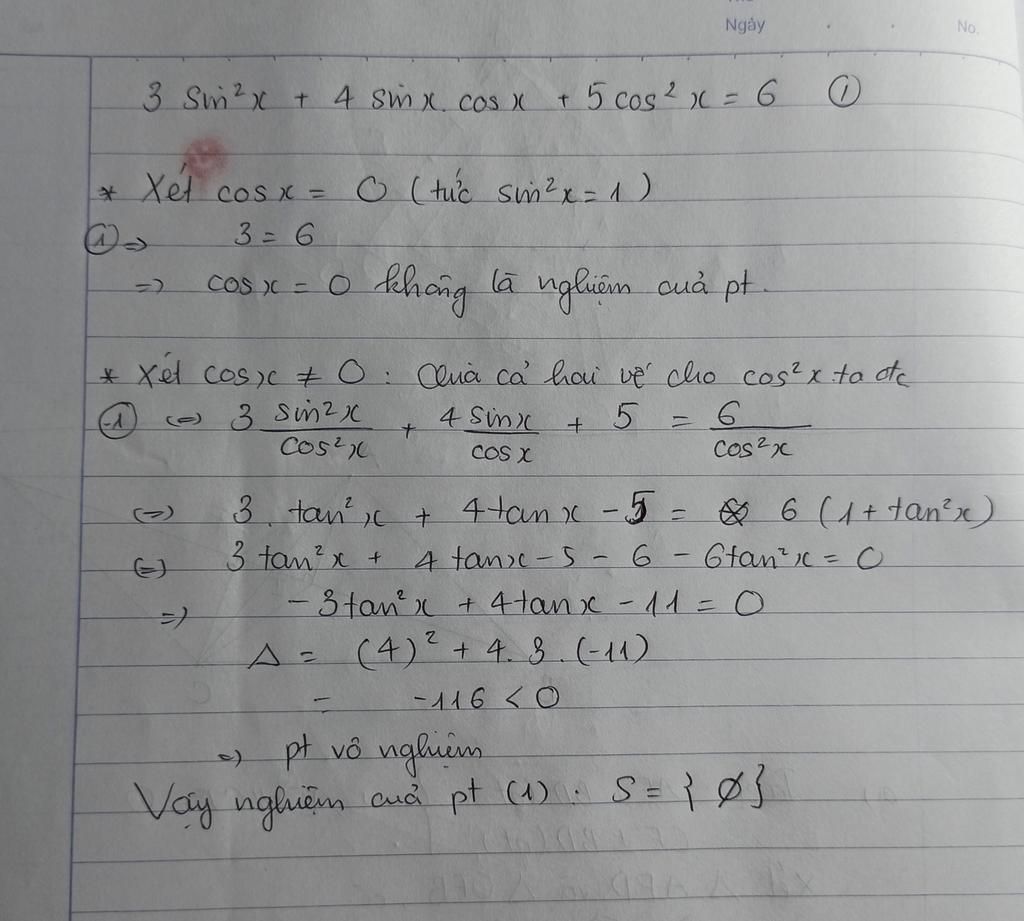 Ngày
No.
3 sin²x + 4 sinx.cosx + 5cos²x = 6 ①
* Xét cosx = 0 (tức sin²x = 1)
① => 3 = 6
=> cosx = 0 không là nghiệm cuả pt.
* Xét cosx ≠ 0 : Chia cả hai vế cho cos²x ta đc
① <=> 3 sin²x/cos²x + 4 sinx/cosx + 5 = 6/cos²x
<=> 3. tan²x + 4tanx - 5 = 6 (1 + tan²x)
<=> 3tan²x + 4tanx - 5 - 6 - 6tan²x = 0
=> -3tan²x + 4tanx - 11 = 0
Δ = (4)² + 4.3.(-11)
= -116 < 0
=> pt vô nghiệm
Vậy nghiệm cuả pt (1) : S = { Ø }